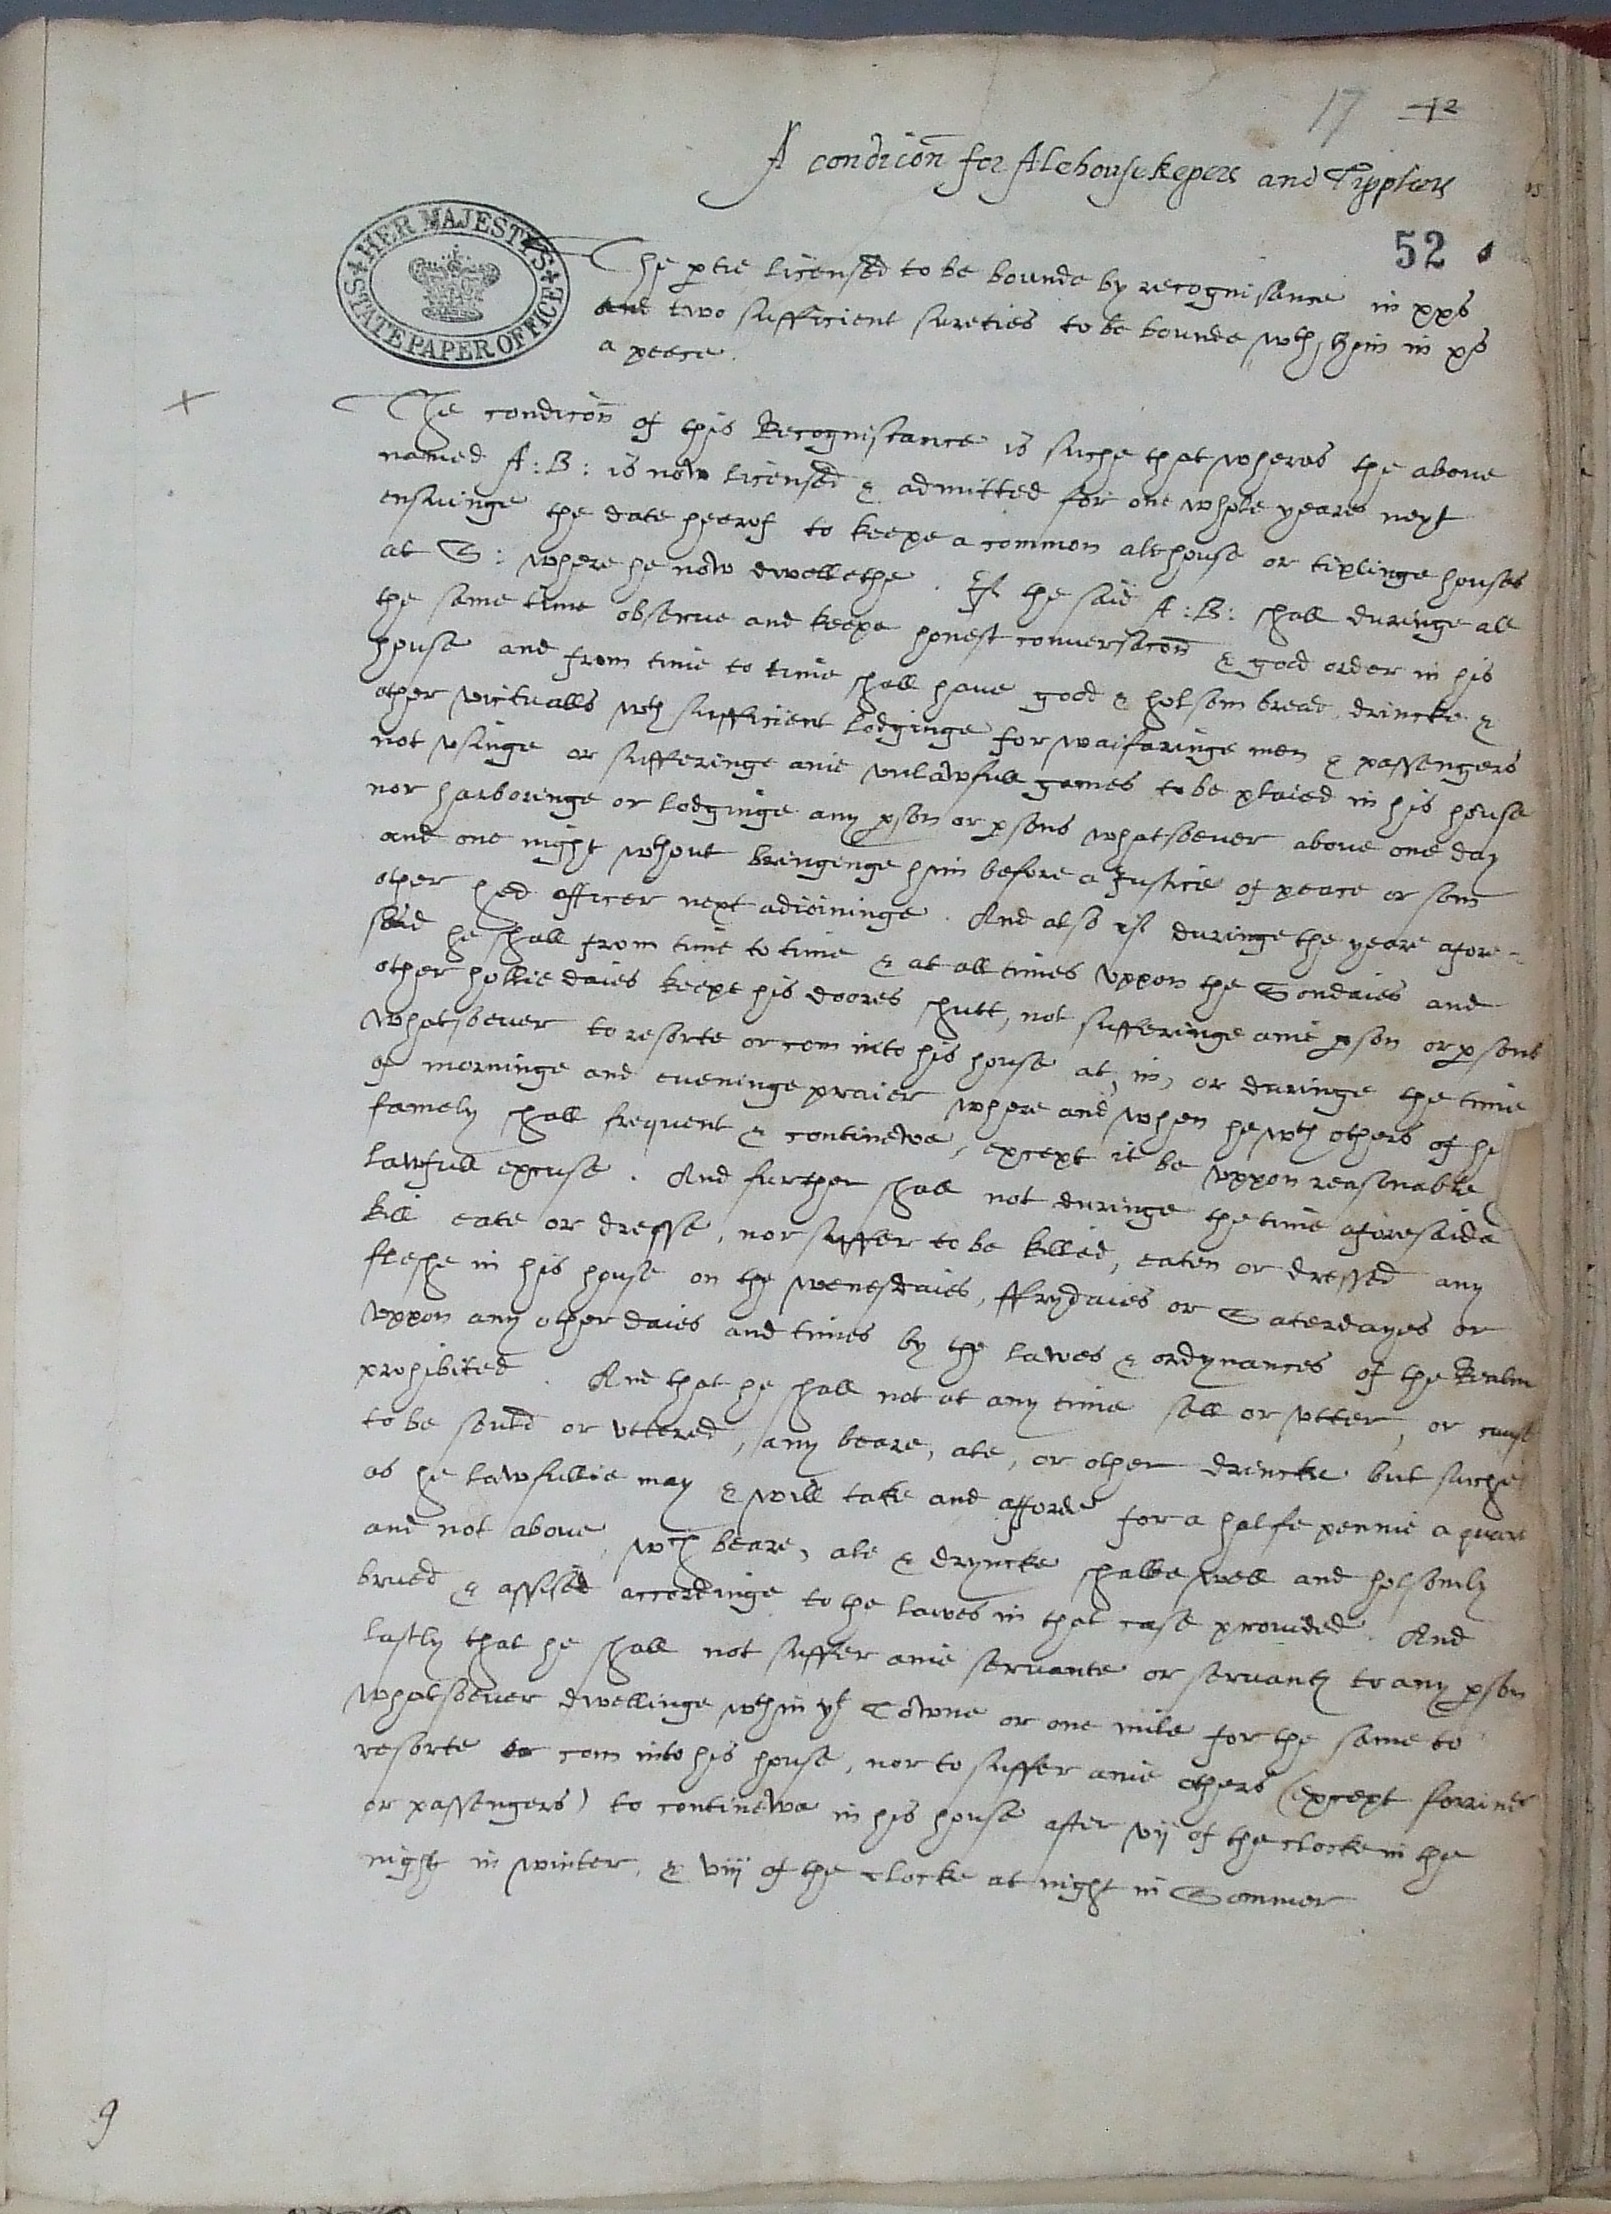 17 12
A condicon for Alehousekepers and Tipplers
52
HER MAJESTY'S STATE PAPER OFFICE
The ptie licensed to be bounde by recognisance in xxs
and two sufficient sureties to be bounde wth him in xs
a peece.
The condicon of this Recognistance is suche that wheras the above
named A : B : is now licensed & admitted for one whole yeare next
ensuinge the date heerof to keepe a common alehouse or tiplinge house
at S : where he now dwellethe . If the said A : B : shall duringe all
the same time observe and keepe honest conversacon & good order in his
house and from time to time shall have good & holsom bread, drincke &
other victualls wth sufficient lodginge for waifaringe men & passengers
not vsinge or sufferinge anie vnlawfull games to be plaied in his house
nor harboringe or lodginge any pson or psons whatsoever above one day
and one night wthout bringinge him before a Justice of peace or som
other hed officer next adioininge . And also if duringe the yeare afore-
said he shall from time to time & at all times vppon the Sondaies and
other hollie daies keepe his doores shutt, not sufferinge anie pson or psons
whatsoever to resorte or com into his house at, in, or duringe the time
of morninge and eveninge praier where and when he wth others of his
famely shall frequent & continewe, except it be vppon reasonable
lawfull excuse . And further shall not duringe the time aforesaide
kill eate or dresse, nor suffer to be killed, eaten or dressed any
fleshe in his house on the wenesdaies, ffrydaies or Saterdayes or
vppon any other daies and times by the lawes & ordynances of the Realm
prohibited . And that he shall not at any time sell or vtter, or cause
to be sould or vttered, any beare, ale, or other drincke but suche
as he lawfullie may & will take and afforde for a halfe pennie a quart
and not above, wch beare, ale & dryncke shalbe well and holsomly
brued & assised accordinge to the lawes in that case provided . And
lastly that he shall not suffer anie servante or servants to any pson
whatsoever dwellinge wthin yt Towne or one mile for the same to
resorte or com into his house, nor to suffer anie others (except forriners
or passengers) to continewe in his house after vij of the clocke in the
night in winter, & viij of the clocke at night in Sommer
9